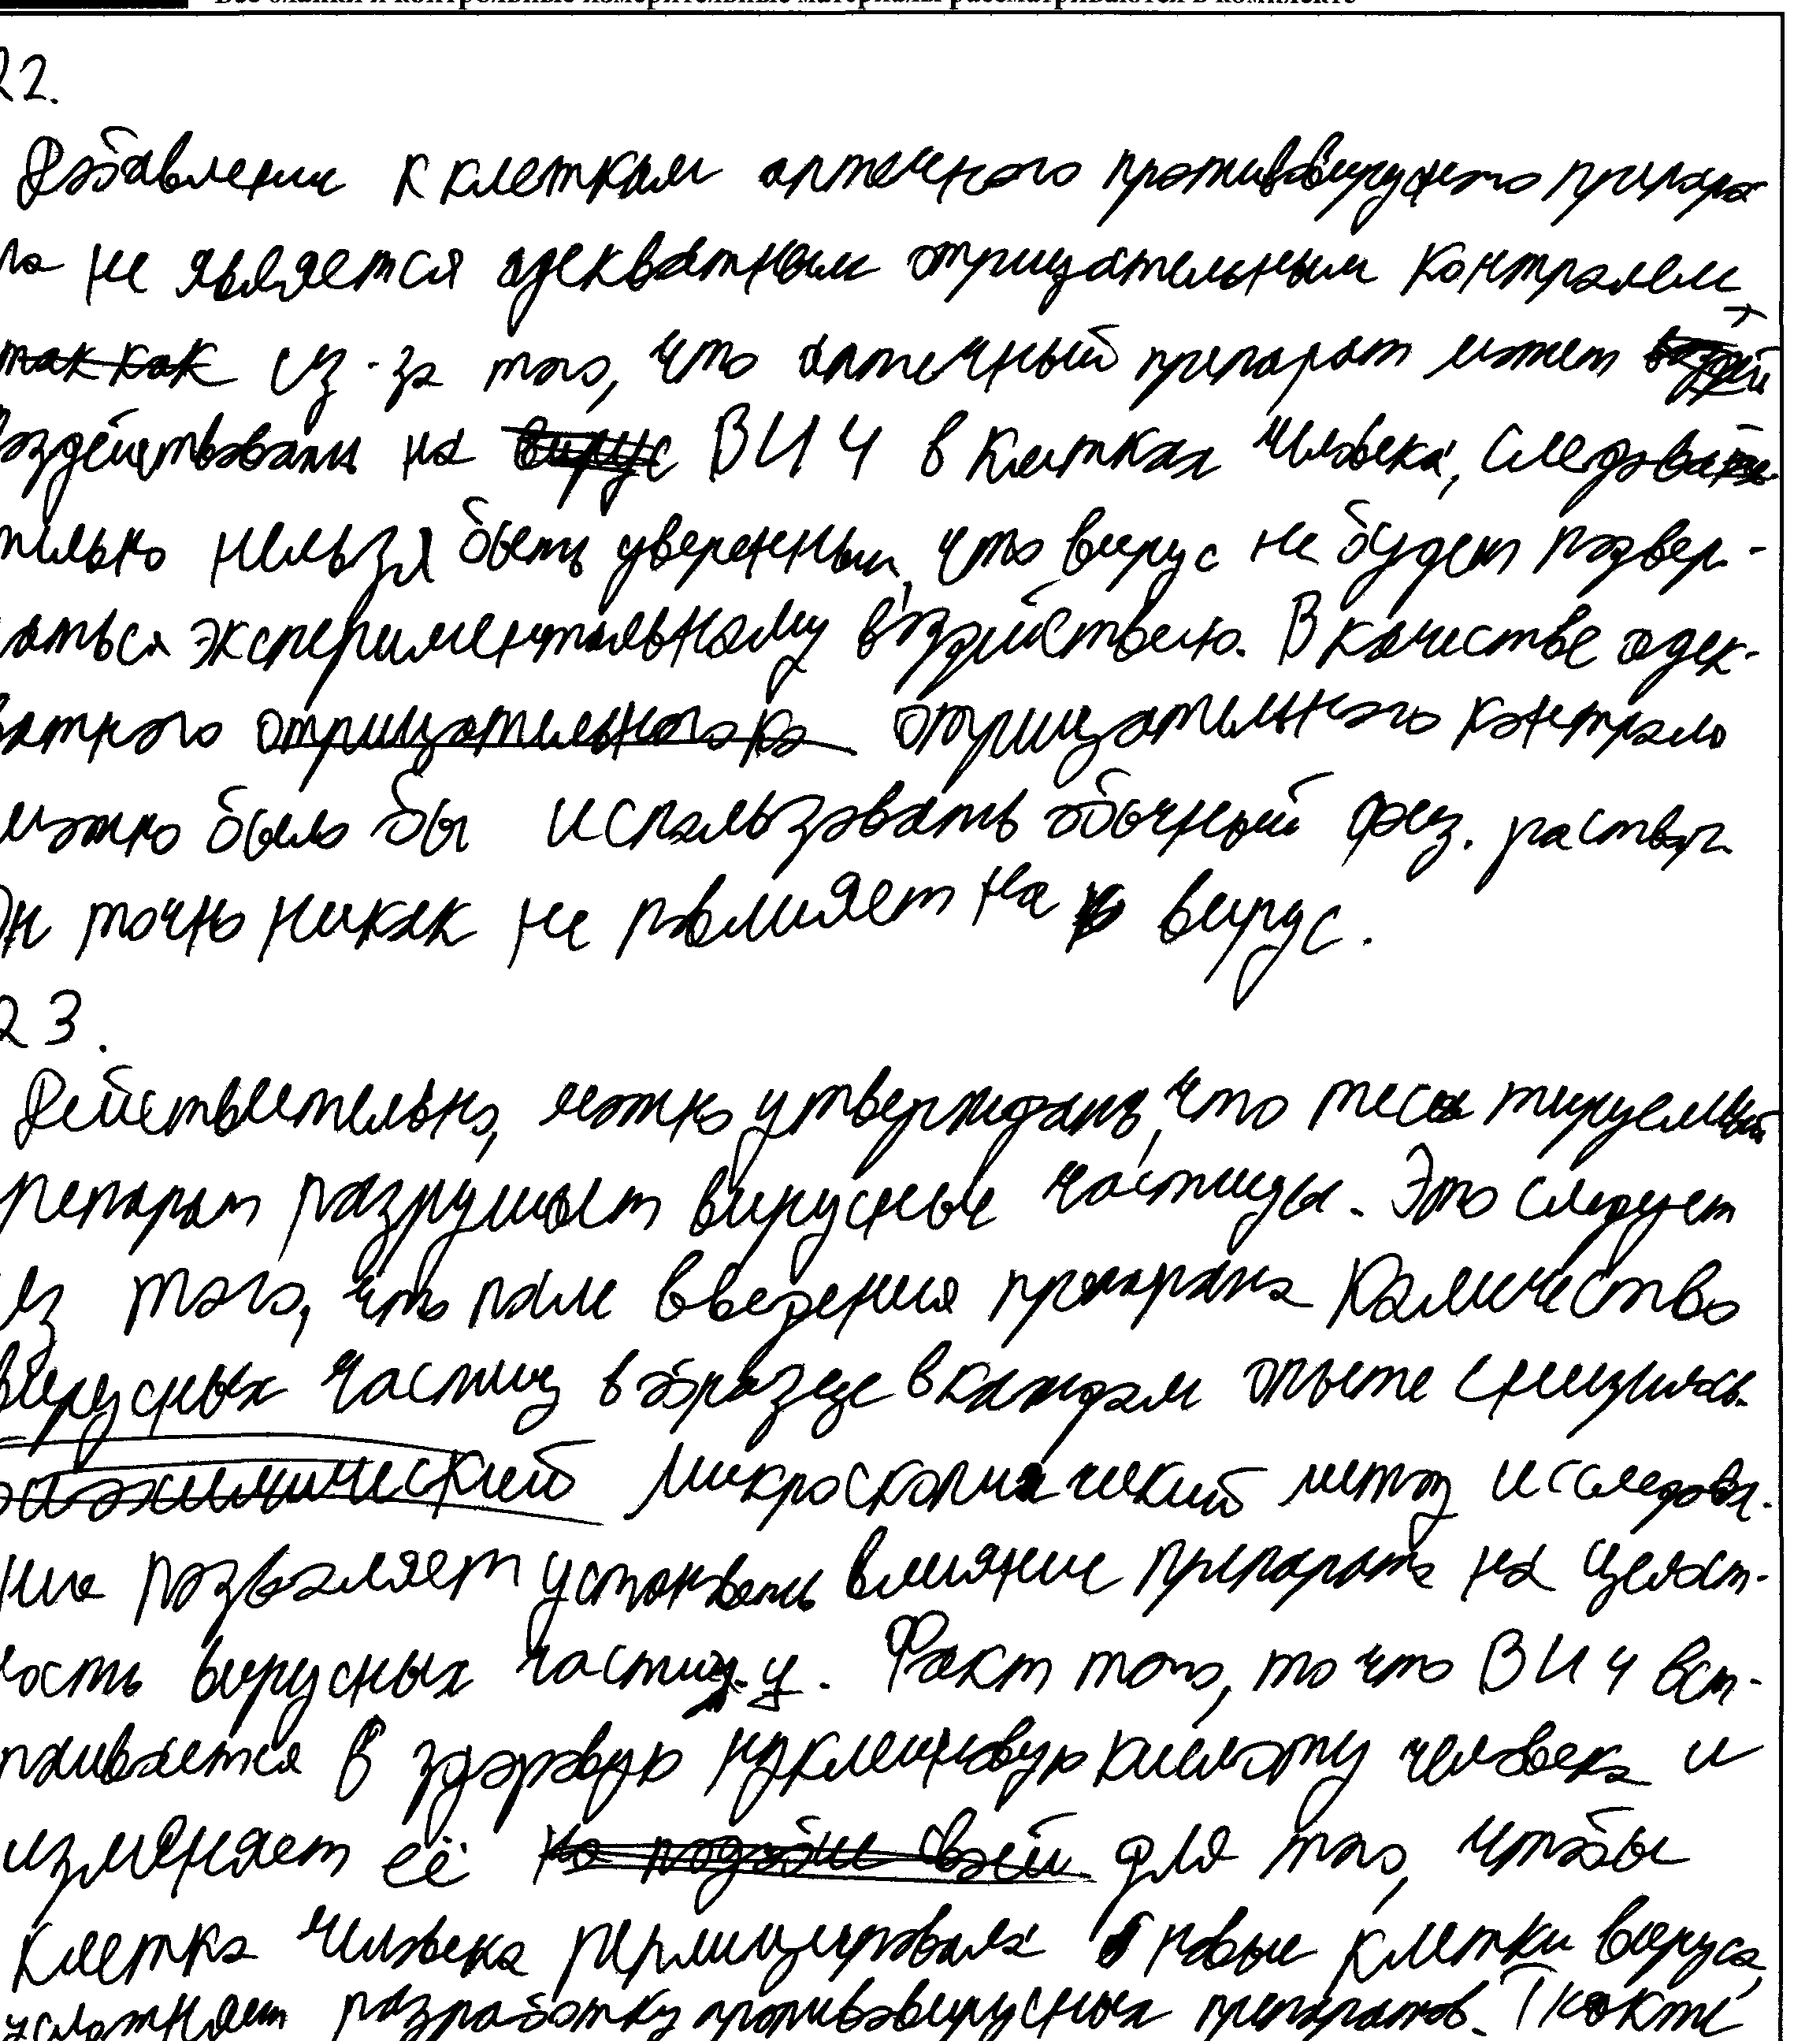 Все бланки и контрольные измерительные материалы рассматриваются в комплекте
22.
Добавления к клеткам аптечного противовирусного препара
та не является адекватным отрицательным контролем,
так как из-за того, что аптечный препарат может
воздействовать на вирус ВИЧ в клетках человека, следова
тельно нельзя быть уверенным, что вирус не будет подвер-
гаться экспериментальному воздействию. В качестве адек-
ватного отрицательного ко отрицательного контроля
можно было бы использовать обычный физ. раствор.
Он точно никак не повлияет на вирус.
23.
Действительно, можно утверждать, что тестируемый
препарат разрушает вирусные частицы. Это следует
из того, что после введения препарата количество
вирусных частиц в образце в каждом опыте снизилось.
Биохимический Микроскопический метод исследова-
ния позволяет установить влияние препарата на целост-
ность вирусных частиц. Факт того, то что ВИЧ вст-
раивается в здоровую нуклеиновую кислоту человека и
изменяет её на подобие своей для того, чтобы
клетка человека реплицировала новые клетки вируса,
усложняет разработку противовирусных препаратов. Также